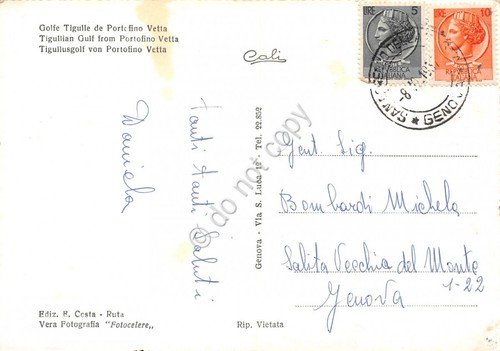 Golfe Tigulle de Portofino Vetta
Tigullian Gulf from Portofino Vetta
Tigullusgolf von Portofino Vetta
Cali
Tanti tanti Saluti
Daniela
Ediz. E. Costa - Ruta
Vera Fotografia "Fotocelere"
Rip. Vietata
Genova - Via S. Luca 12 - Tel. 22.852
do not copy
LIRE 5
10
GENOVA
Gent. Sig.
Bombardi Michela
Salita Vecchia del Monte
1-22
Genova